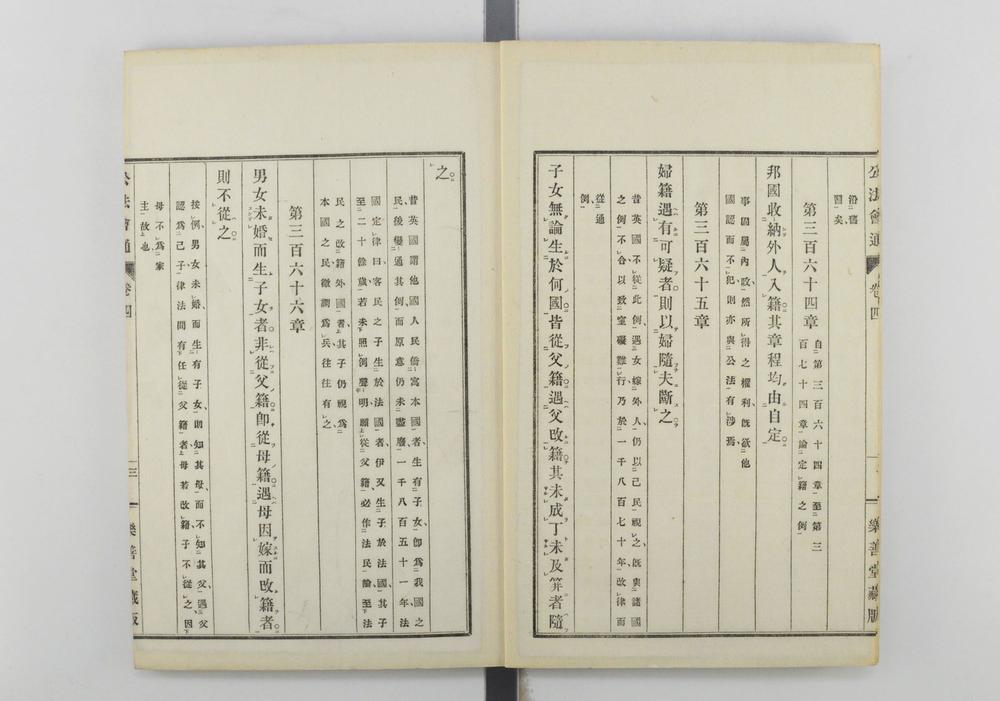 公法會通 卷四
沿舊
習矣
第三百六十四章
自第三百六十四章至第三
百七十四章論定籍之例
邦國收納外人入籍其章程均由自定
事固屬內政然所得之權利旣欲他
國認而不犯則亦與公法有涉焉
第三百六十五章
婦籍遇有可疑者則以婦隨夫斷之
昔英國不從此例遇女嫁外人仍以己民視之旣與諸國
之例不合以致窒礙難行乃於一千八百七十年改律而
從通
例
子女無論生於何國皆從父籍遇父改籍其未成丁未及笄者隨
之
昔英國謂他國人民僑寓本國者生有子女卽爲我國之
民後變通其例而原意仍未盡廢一千八百五十一年法
國定律曰客民之子生於法國者伊又生子於法國其子
至二十餘歲若未照例聲明願從父籍必作法民論至法
民之改籍外國者其子仍視爲
本國之民徵調爲兵往往有之
第三百六十六章
男女未婚而生子女者非從父籍卽從母籍遇母因嫁而改籍者
則不從之
按例男女未婚而生有子女則知其母而不知其父遇父
認爲己子律法間有任從父籍者母若改籍子不從之因
母不爲家
主故也
公法會通 卷四 三 樂善堂藏版
樂善堂藏版